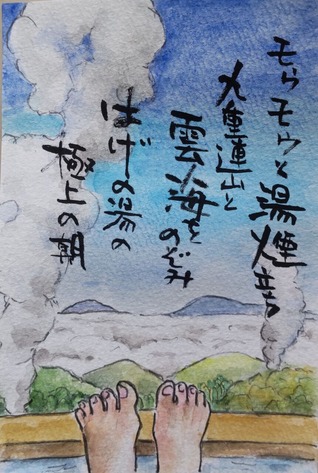 モウモウと湯煙立ち
九重連山と
雲海を
のぞみ
はげの湯の
極上の朝